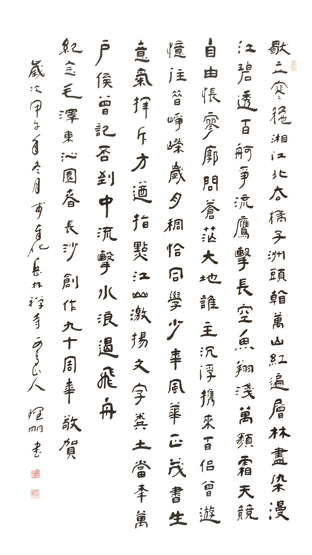 獨立寒秋湘江北去橘子洲頭看萬山紅遍層林盡染漫
江碧透百舸爭流鷹擊長空魚翔淺萬類霜天競
自由悵寥廓問蒼茫大地誰主沉浮攜來百侶曾遊
憶往昔崢嶸歲月稠恰同學少年風華正茂書生
意氣揮斥方遒指點江山激揚文字糞土當年萬
戶侯曾記否到中流擊水浪遏飛舟
紀念毛澤東沁園春長沙創作九十周年 敬賀
歲次甲午年冬月 禪寺 山人 書